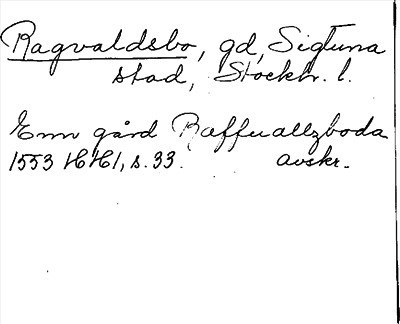 Ragvaldsbo, gd, Sigtuna
stad, Stockh. l.
Enn gård Raffuallzboda
1553 HH1, s. 33. avskr.